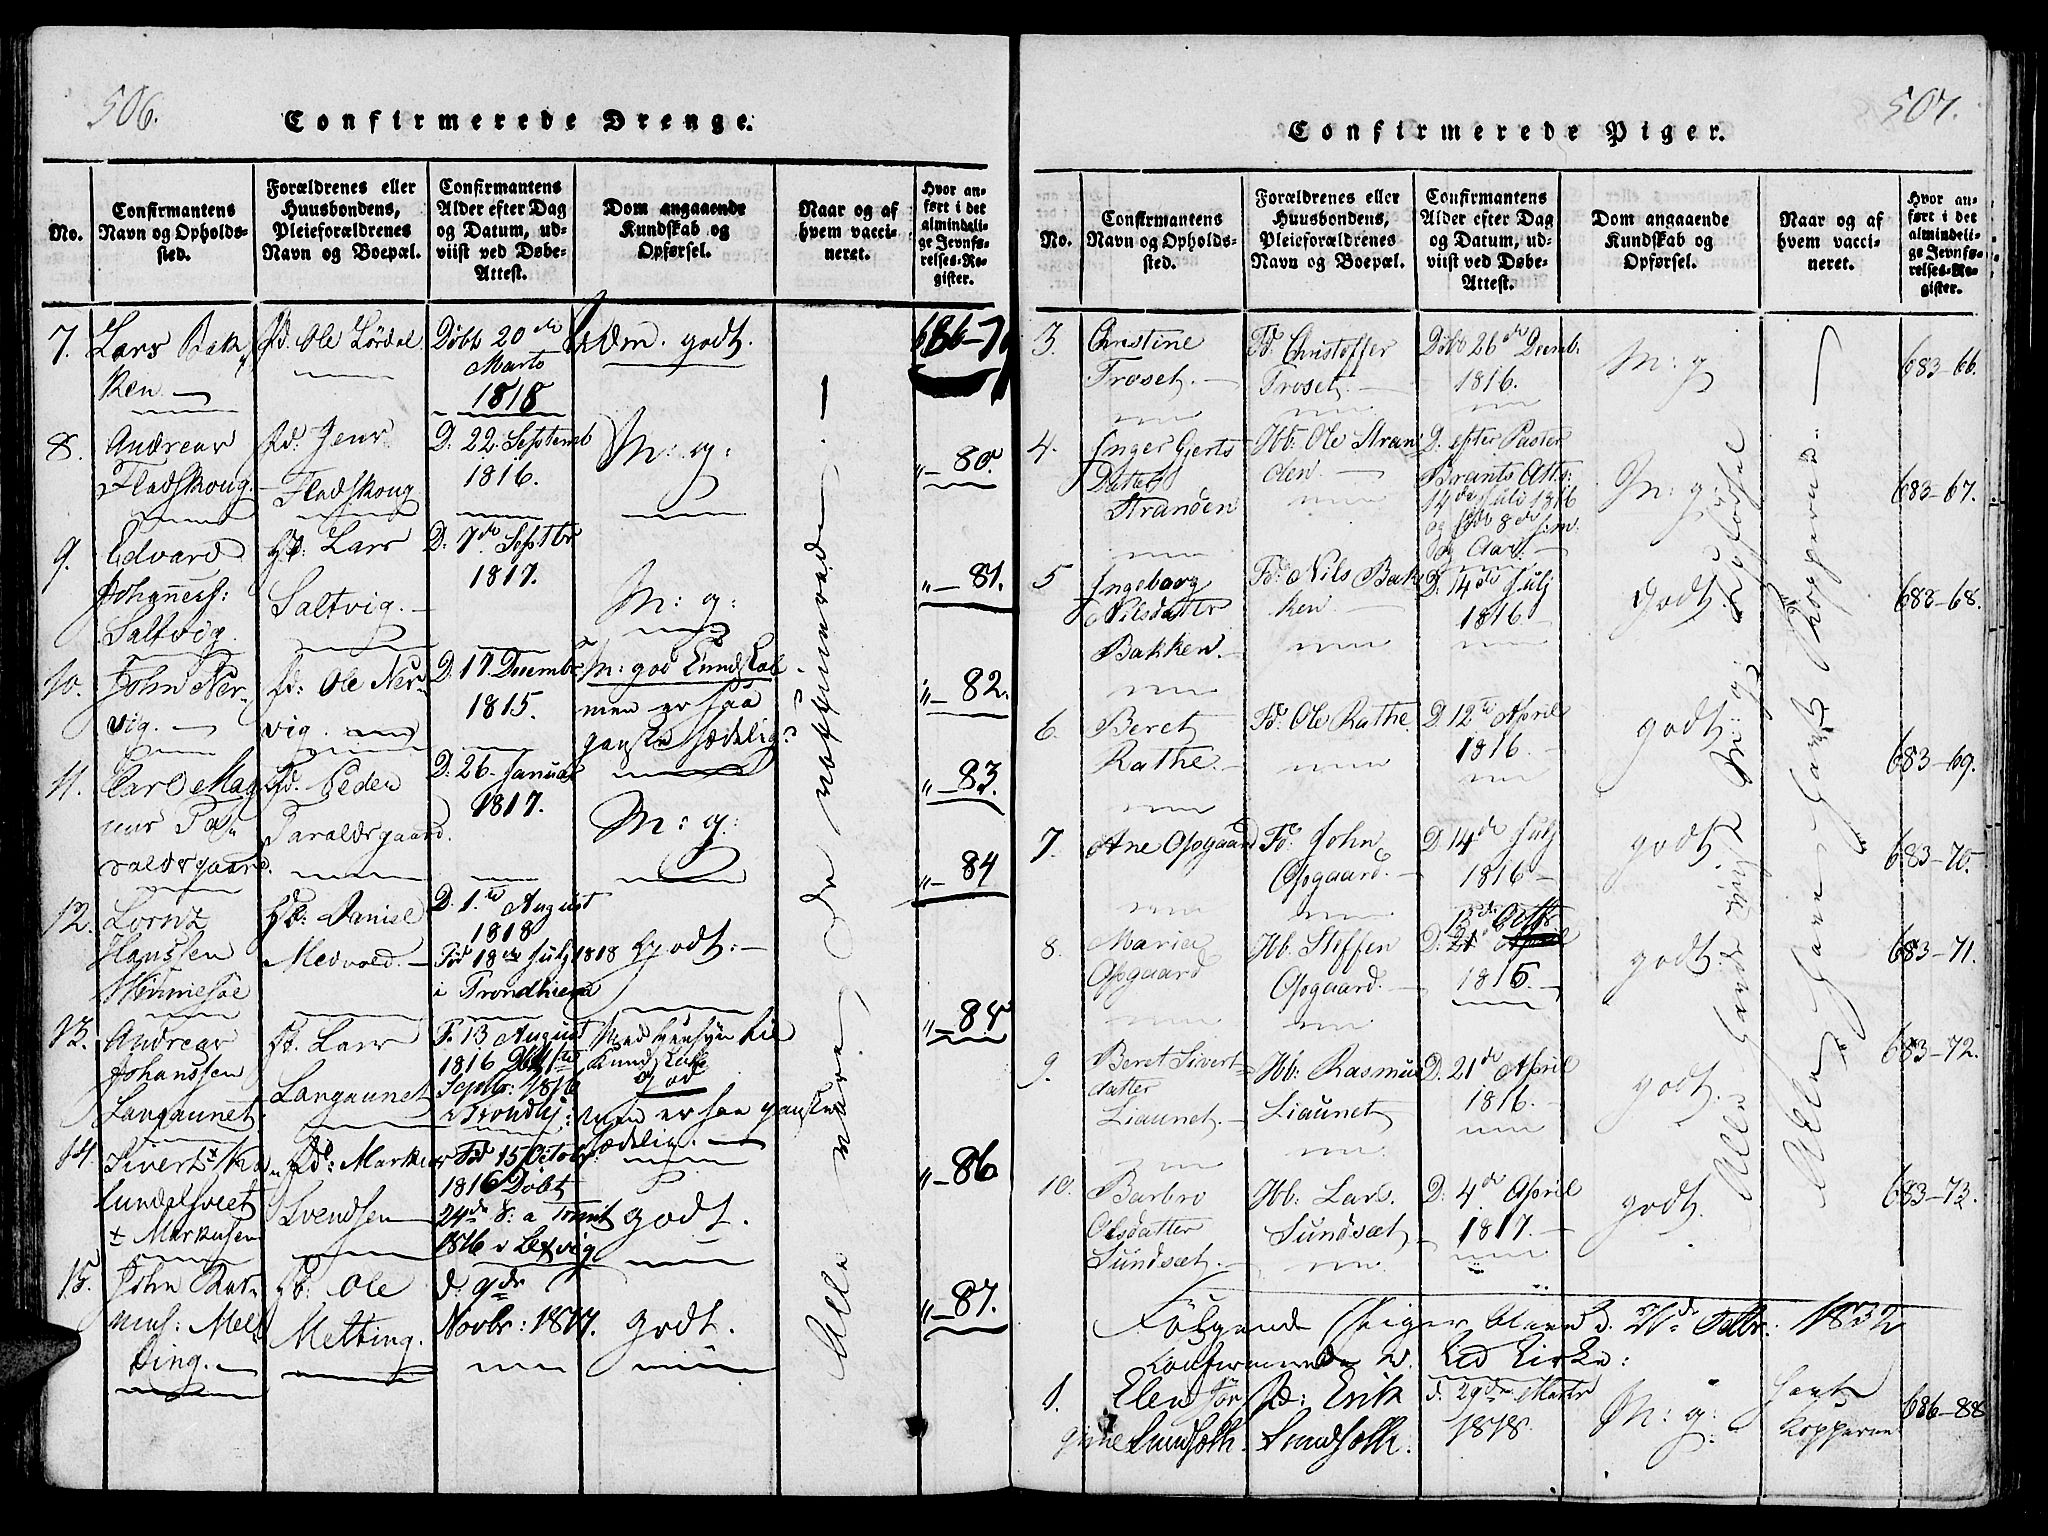 506.
Confirmerede Drenge.
No.
Confirmantens
Navn og Opholds-
sted.
Forældrenes eller
Huusbondens,
Pleieforældrenes
Navn og Boepæl.
Confirmantens
Alder efter Dag
og Datum, ud-
viist ved Døbe-
Attest.
Dom angaaende
Kundskab og
Opførsel.
Naar og af
hvem vacci-
neret.
Hvor an-
ført i det
almindeli-
ge Jevnfø-
relses-Re-
gister.
7. Lars Bak
ken
Fd. Ole Lørdal
Døbt 20de
Marts
1818
godt.
8. Andreas
Fladskoug
Fd. Jens
Fladskoug
D. 22. Septemb
1816.
M: g:
"– 80.
9. Edvard
Johanness:
Saltvig.
Hb: Lars
Saltvig.
D. 7de Septbr
1817.
M: g:
"– 81.
10. John Ner-
vig.
Fd: Ole Ner-
vig.
D. 17. Decembr
1815.
M: god Kundskab
men er saa
ganske sædelig?
"– 82.
11. Carl Mag
nus Pa
raldsgaard.
Fd. Peder
Paraldsgaard.
D. 26. Januar
1817.
M: g:
"– 83.
12. Lorntz
Hanssen
Hb: Daniel
Medvold.
D. 1. August
1818
Fød 18de July 1818
i Trondhiem
Godt:
"– 84
13. Andreas
Johanssen
Langaunet.
Hb. Lars
Langaunet
F. 13 August
1816
Septbr: 1816
i Trondhj:
Med Hensyn til
Kundskab
god
men er saa ganske
sædelig.
14. Sivert
Lundalsveet
± Markusen
Fd: Markus
Svendsen
Fød 15 Octobr
1816 Døbt
24de S: a Trinit
1816 i Lexvig
godt.
"– 86
15. John Ras-
mus: Mel-
ting.
Hb. Ole
Melting.
d. 9de
Novbr: 1817.
godt.
"– 87.
Alle være de vakcinerede
507.
Confirmerede Piger.
No.
Confirmantens
Navn og Opholds-
sted.
Forældrenes eller
Huusbondens,
Pleieforældrenes
Navn og Boepæl.
Confirmantens
Alder efter Dag
og Datum, ud-
viist ved Døbe-
Attest.
Dom angaaende
Kundskab og
Opførsel.
Naar og af
hvem vacci-
neret.
Hvor an-
ført i det
almindeli-
ge Jevnfø-
relses-Re-
gister.
3. Christine
Trøset.
Fd. Christoffer
Trøset.
Døbt 26de Decemb.
1816.
M: g
683–66.
4. Inger Gierts
Datter
Stranden
Hb: Ole Stran
den
D. efter Pastor
Brants Att:
14de Juli 1816
M: g:
683–67.
5 Ingeborg
Nilsdatter
Bakken.
Fd. Nils Bak
ken
D. 14de July
1816.
godt.
683–68.
6. Beret
Rathe
Fd. Ole Rathe
D. 12te April
1816.
godt
683–69.
7. Ane Opgaard
Fd. John
Opgaard.
D. 14de July
1816
godt.
683–70.
8. Maria
Opgaard
Hb. Steffen
Opgaard.
13de Octbr
1815.
godt.
683–71.
9. Beret Sivert-
datter
Liaunet.
Hb: Rasmus
Liaunet
D. 21de April
1816.
godt.
683–72.
10. Barbro
Olsdatter
Sundsæt.
Hb: Lars
Sundsæt
D: 4de April
1817.
godt.
683–73.
Alle Opførsel
Alle have havt Kopperne
Følgende Piger bleve d. Febr. 1832
Confirmerede v. Kirke:
1. Elen Jør
gine
Fd: Erik
d. 29de Marts
1818.
M: g:
havt
Kopperne
686–88